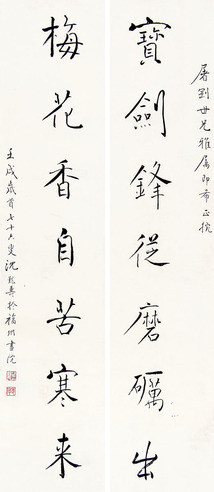 屠剑世兄雅属即希正捥
寶劍鋒從磨礪出
梅花香自苦寒来
壬戌歲首七十六叟沈於福州書院